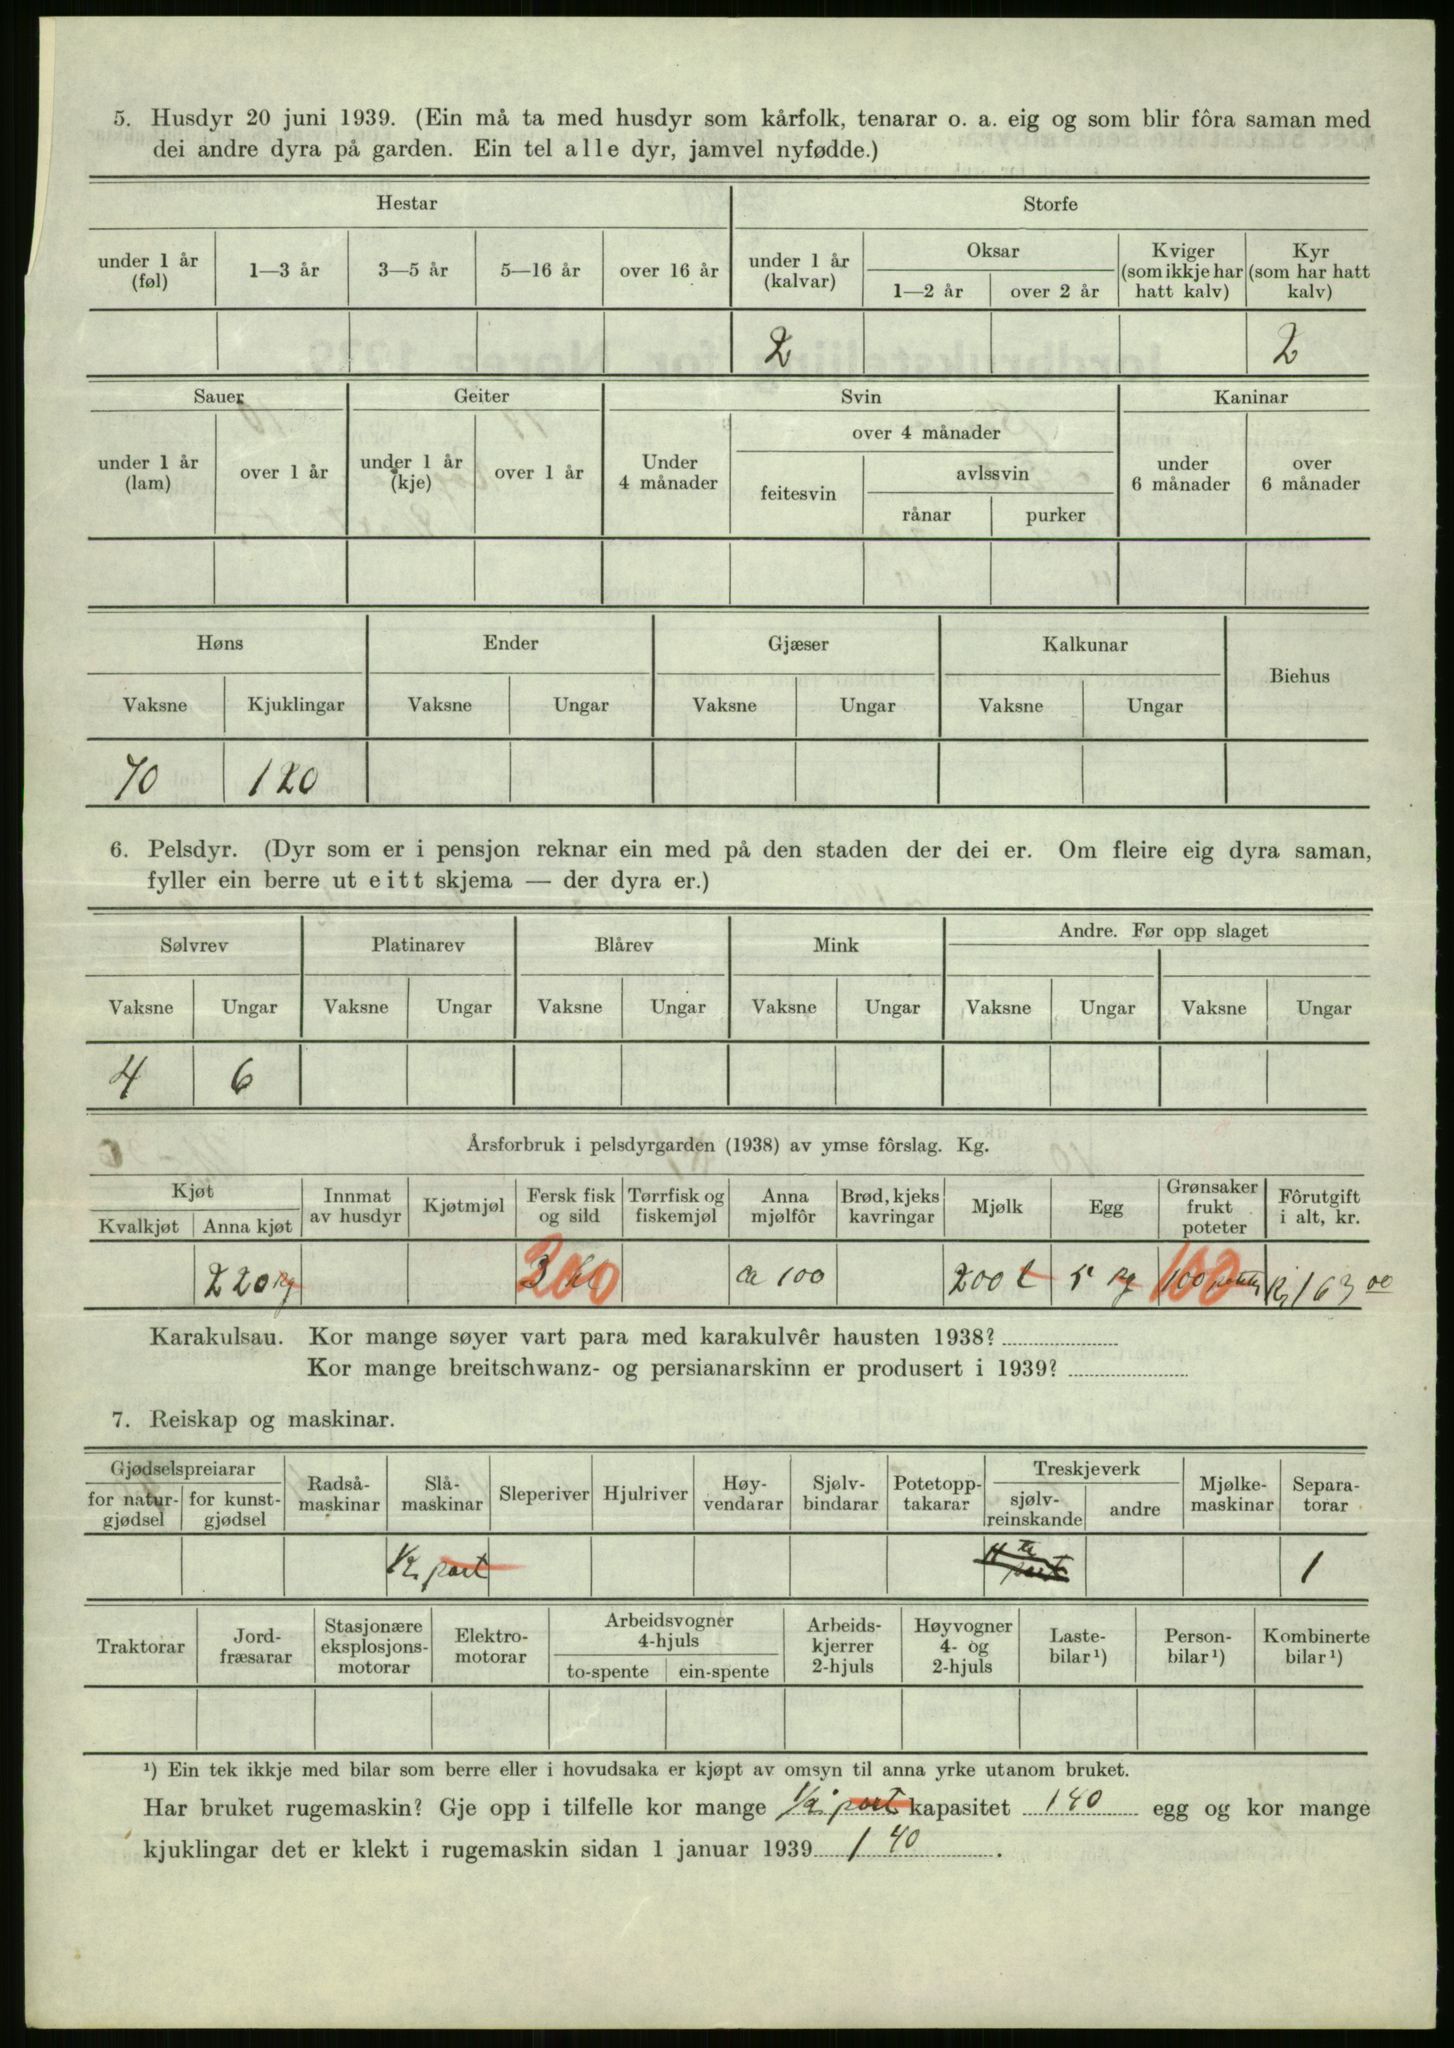 5. Husdyr 20 juni 1939. (Ein må ta med husdyr som kårfolk, tenarar o. a. eig og som blir fôra saman med
dei andre dyra på garden. Ein tel alle dyr, jamvel nyfødde.)
Hestar Storfe
under 1 år (føl) 1—3 år 3—5 år 5—16 år over 16 år under 1 år (kalvar) Oksar 1—2 år over 2 år Kviger (som ikkje har hatt kalv) Kyr (som har hatt kalv)
2 2
Sauer Geiter Svin Kaninar
over 4 månader
under 1 år (lam) over 1 år under 1 år (kje) over 1 år Under 4 månader feitesvin avlssvin rånar purker under 6 månader over 6 månader
Høns Ender Gjæser Kalkunar Biehus
Vaksne Kjuklingar Vaksne Ungar Vaksne Ungar Vaksne Ungar
70 120
6. Pelsdyr. (Dyr som er i pensjon reknar ein med på den staden der dei er. Om fleire eig dyra saman,
fyller ein berre ut eitt skjema — der dyra er.)
Sølvrev Platinarev Blårev Mink Andre. Før opp slaget
Vaksne Ungar Vaksne Ungar Vaksne Ungar Vaksne Ungar Vaksne Ungar Vaksne Ungar
4 6
Årsforbruk i pelsdyrgarden (1938) av ymse fôrslag. Kg.
Kjøt Kvalkjøt Anna kjøt Innmat av husdyr Kjøtmjøl Fersk fisk og sild Tørrfisk og fiskemjøl Anna mjølfôr Brød, kjeks kavringar Mjølk Egg Grønsaker frukt poteter Fôrutgift i alt, kr.
220 kg 300 ca 100 200 l 5 kg 100 Kr 163 00
Karakulsau. Kor mange søyer vart para med karakulvêr hausten 1938?
Kor mange breitschwanz- og persianarskinn er produsert i 1939?
7. Reiskap og maskinar.
Gjødselspreiarar for natur-gjødsel for kunst-gjødsel Radså-maskinar Slå-maskinar Sleperiver Hjulriver Høy-vendarar Sjølv-bindarar Potetopp-takarar Treskjeverk sjølv-reinskande andre Mjølke-maskinar Separa-torar
1/2 part 4 te part 1
Traktorar Jord-fræsarar Stasjonære eksplosjons-motorar Elektro-motorar Arbeidsvogner 4-hjuls to-spente ein-spente Arbeids-kjerrer 2-hjuls Høyvogner 4- og 2-hjuls Laste-bilar¹) Person-bilar¹) Kombinerte bilar¹)
¹) Ein tek ikkje med bilar som berre eller i hovudsaka er kjøpt av omsyn til anna yrke utanom bruket.
Har bruket rugemaskin? Gje opp i tilfelle kor mange 1/2 part kapasitet 140 egg og kor mange
kjuklingar det er klekt i rugemaskin sidan 1 januar 1939 140.